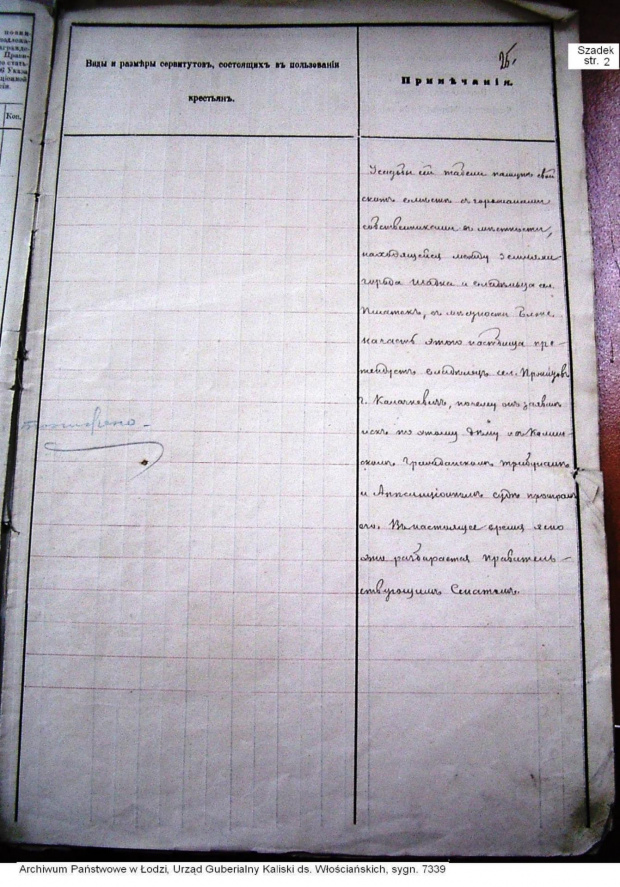 25.
Szadek
str. 2
Виды и размѣры сервитутовъ, состоящихъ въ пользованіи
крестьянъ.
Примѣчанія.
Коп.
Усадьбы сей табели пасутъ свой
скотъ вмѣстѣ съ горожанами
собственниками въ мѣстности,
находящейся между землями
города Шадка и владѣльца им.
Пшатекъ, въ мѣстности Блоне
на часть этого пастбища пре-
тендуетъ владѣлецъ сел.
г. Калачкевичъ, почему онъ заявилъ
искъ по этому дѣлу въ Калиш-
скомъ Гражданскомъ Трибуналѣ
и Аппеляціонномъ судѣ проигралъ
его. Въ настоящее время дѣло
это разбирается Правитель-
ствующимъ Сенатомъ.
Archiwum Państwowe w Łodzi, Urząd Guberialny Kaliski ds. Włościańskich, sygn. 7339